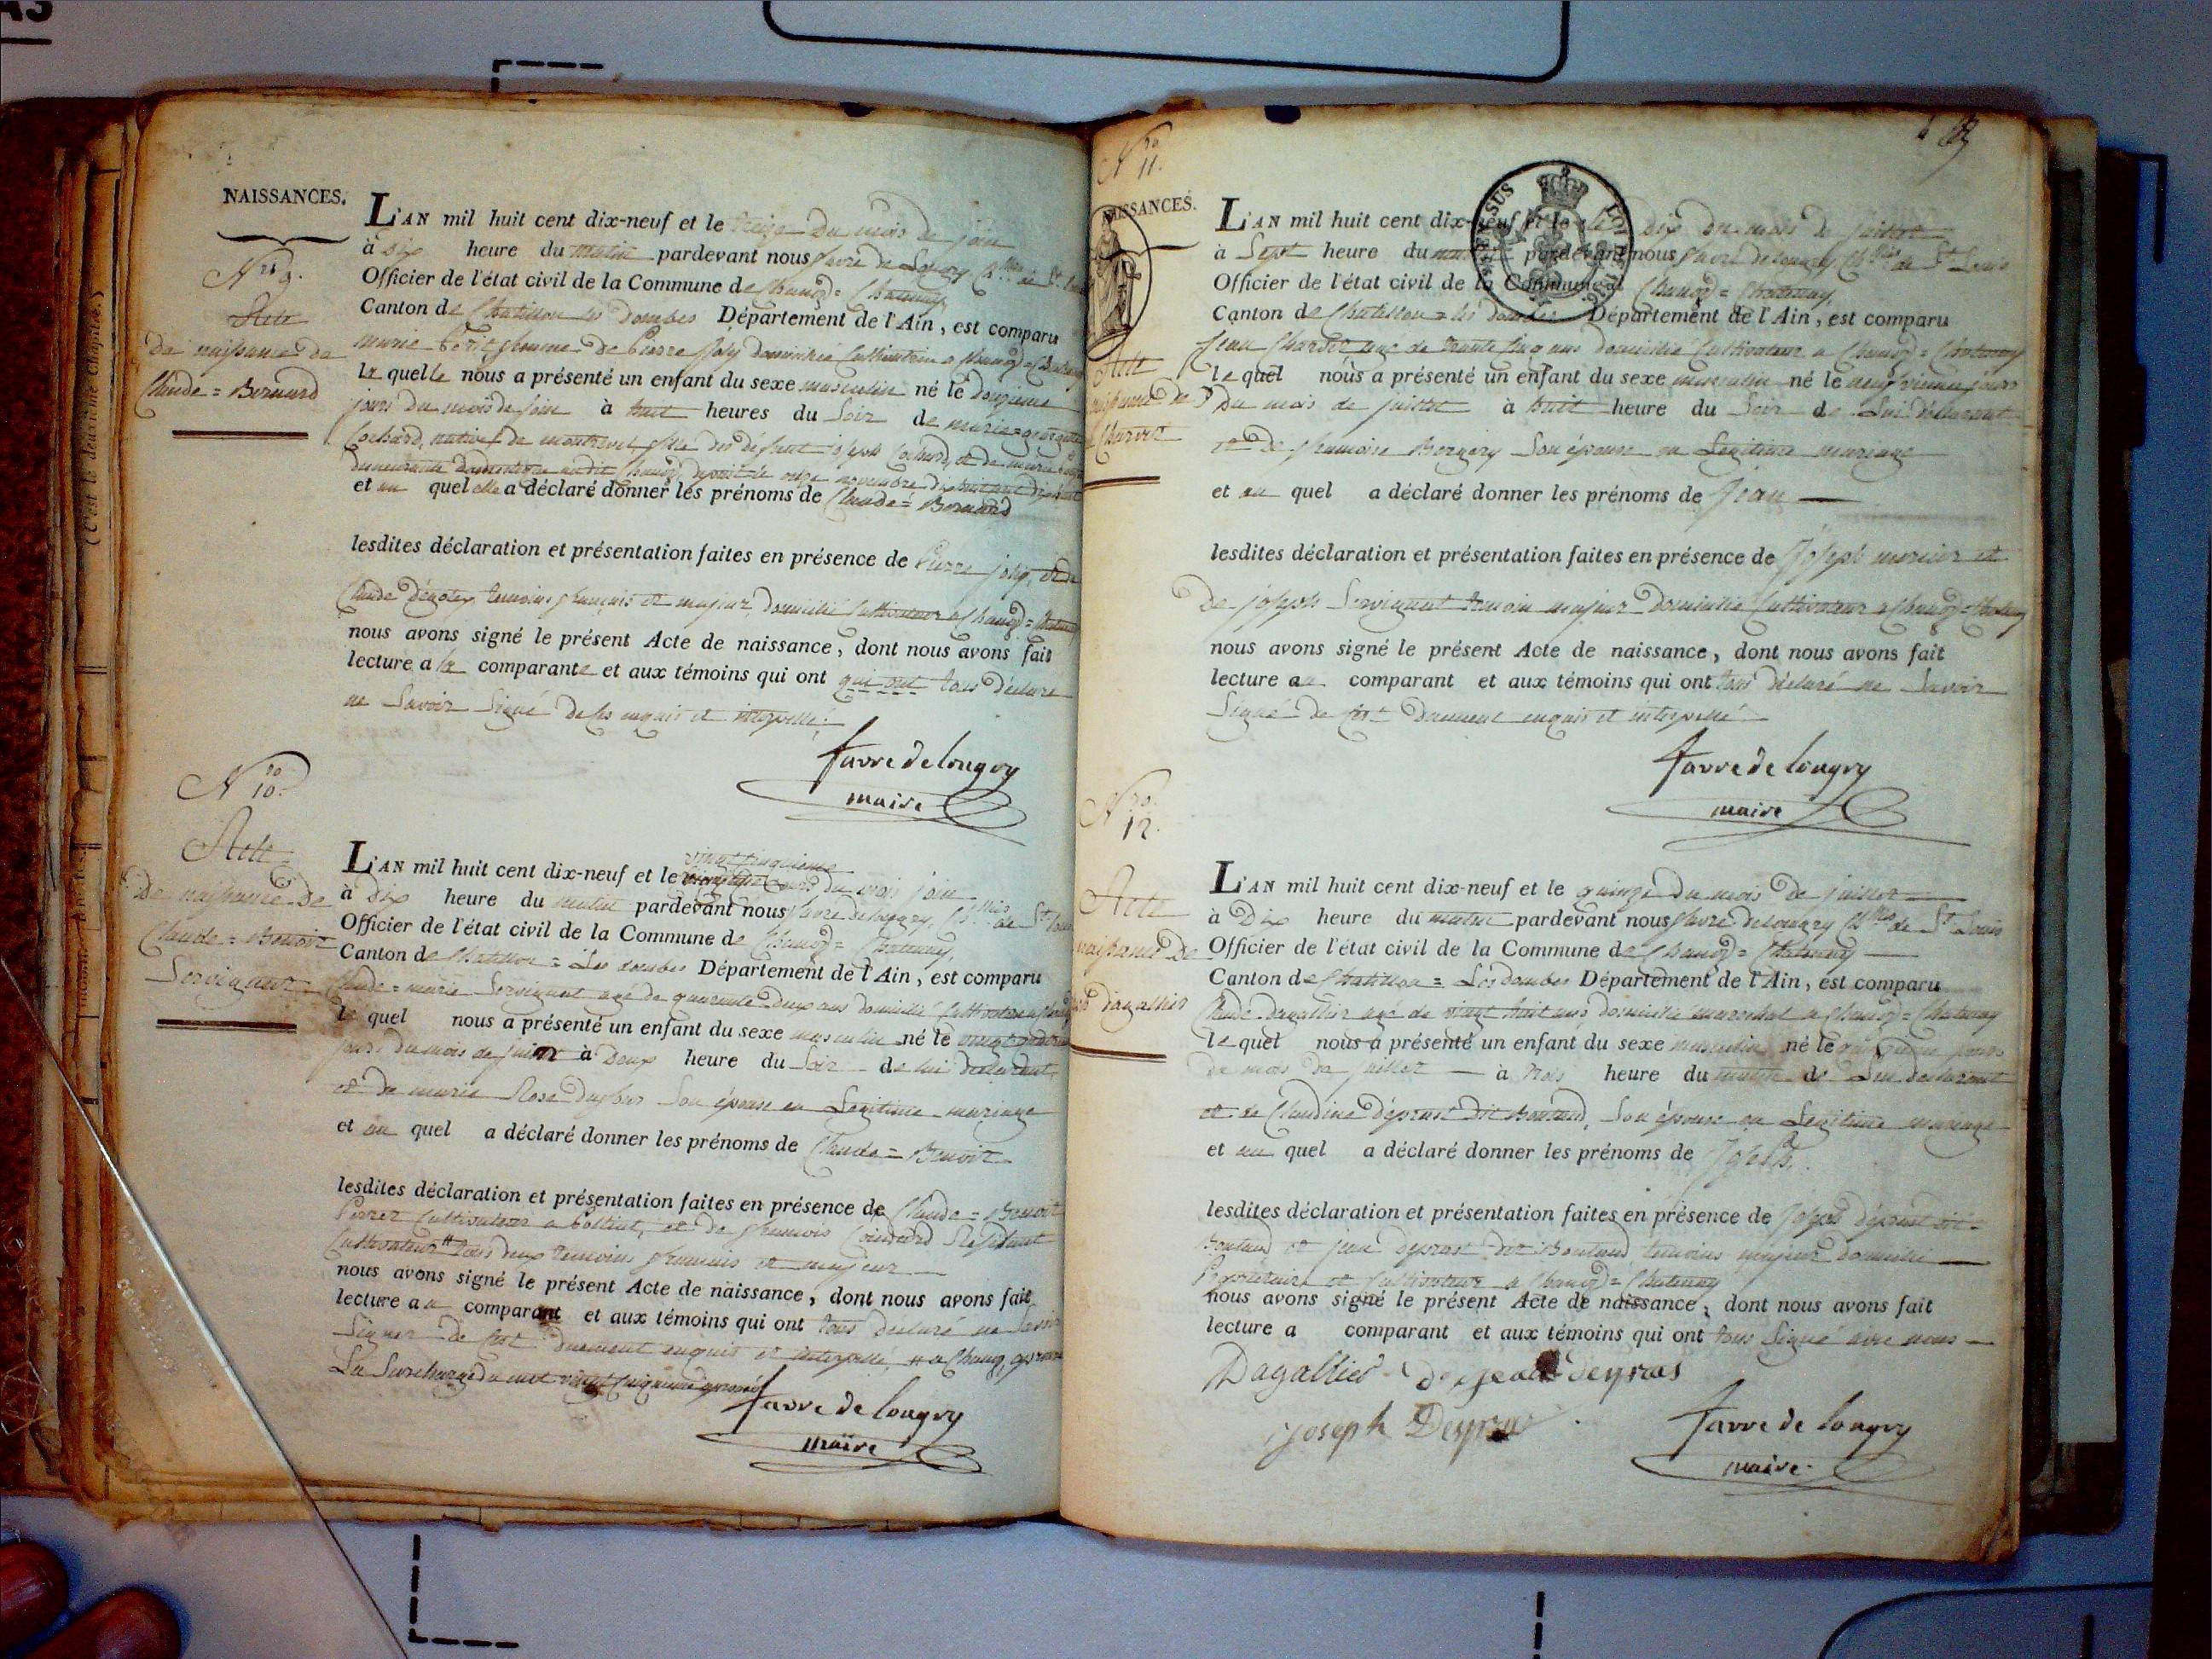 NAISSANCES.
N.ro 9.
Acte
de naissance de
Claude = Bernard
L'AN mil huit cent dix-neuf et le treize du mois de juin
à dix heure du matin pardevant nous favre de Longry Ch.lier de S.t Louis
Officier de l'état civil de la Commune de Chanoz = Chatenay
Canton de Chatillon les dombes Département de l'Ain, est comparu
marie femme de Pierre Joly domiciliée Cultivatrice a Chanoz = Chatenay
la quelle nous a présenté un enfant du sexe masculin né le douzieme
jours du mois de juin à huit heures du Soir de marie =
Cochard, native de montrevel fille de défunt joseph Cochard, et de marie
audit Chanoz depuis le onze novembre dix huit cent
et au quel elle a déclaré donner les prénoms de Claude = Bernard
lesdites déclaration et présentation faites en présence de Pierre joly, et de
Claude témoins francais et majeur domicilié Cultivateur a Chanoz = Chatenay
nous avons signé le présent Acte de naissance, dont nous avons fait
lecture a la comparante et aux témoins qui ont qui ont tous déclaré
ne Savoir Signé de ces enquis et interpellé.
favre de longry
maire
N.ro 10.
Acte
de naissance de
Claude = Benoit
Servignat
L'AN mil huit cent dix-neuf et le vingt cinquieme jours du mois juin
à dix heure du matin pardevant nous favre de longry, Ch.lier de S.t Louis
Officier de l'état civil de la Commune de Chanoz = Chatenay,
Canton de Chatillon = Les dombes Département de l'Ain, est comparu
Claude = marie Servignat agé de quarante deux ans domicilié Cultivateur a Chanoz
le quel nous a présenté un enfant du sexe masculin né le vingt
jours du mois de juin à Deux heure du Soir de lui déclarant
et de marie Rose Dufour Son épouse en Legitime mariage
et au quel a déclaré donner les prénoms de Claude = Benoit
lesdites déclaration et présentation faites en présence de Claude = Benoit
Perret Cultivateur a et de francois Résidant
Cultivateur # tous deux temoins francais et majeur
nous avons signé le présent Acte de naissance, dont nous avons fait
lecture au comparant et aux témoins qui ont tous déclaré ne Savoir
Signer de Cest duement enquis et interpellé, # a Chanoz, aprouvé
La Surcharge du mot vingt cinquieme aprouvé
favre de longry
maire
N.ro 11.
NAISSANCES.
Acte
naissance de
Charvet
L'AN mil huit cent dix-neuf et le dix du mois de juillet
à Sept heure du matin pardevant nous favre de longry Ch.lier de S.t Louis
Officier de l'état civil de la Commune de Chanoz = Chatenay,
Canton de Chatillon = les dombes Département de l'Ain, est comparu
Jean Charvet agé de trante cinq ans domicilié Cultivateur a Chanoz = Chatenay
le quel nous a présenté un enfant du sexe masculin né le neuf vieme jours
du mois de juillet à huit heure du Soir de Lui déclarant
et de francoise Son épouse en Legitime mariage
et au quel a déclaré donner les prénoms de Jean
lesdites déclaration et présentation faites en présence de Joseph mercier et
de joseph Servignat temoin majeur domicilié Cultivateur a Chanoz = Chatenay
nous avons signé le présent Acte de naissance, dont nous avons fait
lecture au comparant et aux témoins qui ont tous déclaré ne Savoir
Signé de Cest duement enquis et interpellé
favre de longry
maire
N.ro 12.
Acte
naissance de
dagallier
L'AN mil huit cent dix-neuf et le quinze du mois de juillet
à Dix heure du matin pardevant nous favre de longry Ch.lier de S.t Louis
Officier de l'état civil de la Commune de Chanoz = Chatenay
Canton de Chatillon = Les dombes Département de l'Ain, est comparu
Claude dagallier agé de vingt huit ans domicilié marechal a Chanoz = Chatenay
le quel nous a présenté un enfant du sexe masculin né le quinzieme jours
du mois de juillet à trois heure du matin de Lui declarant
et de Claudine dépras dit Boutaud, Son épouse en Legitime mariage
et au quel a déclaré donner les prénoms de Joseph.
lesdites déclaration et présentation faites en présence de Joseph dépras dit
Boutaud et jean depras dit Boutaud temoins majeur domicilié
Proprietaire et Cultivateur a Chanoz = Chatenay
nous avons signé le présent Acte de naissance, dont nous avons fait
lecture a comparant et aux témoins qui ont tous Signé avec nous
Dagallier jean deyras
joseph Deyras
favre de longry
maire